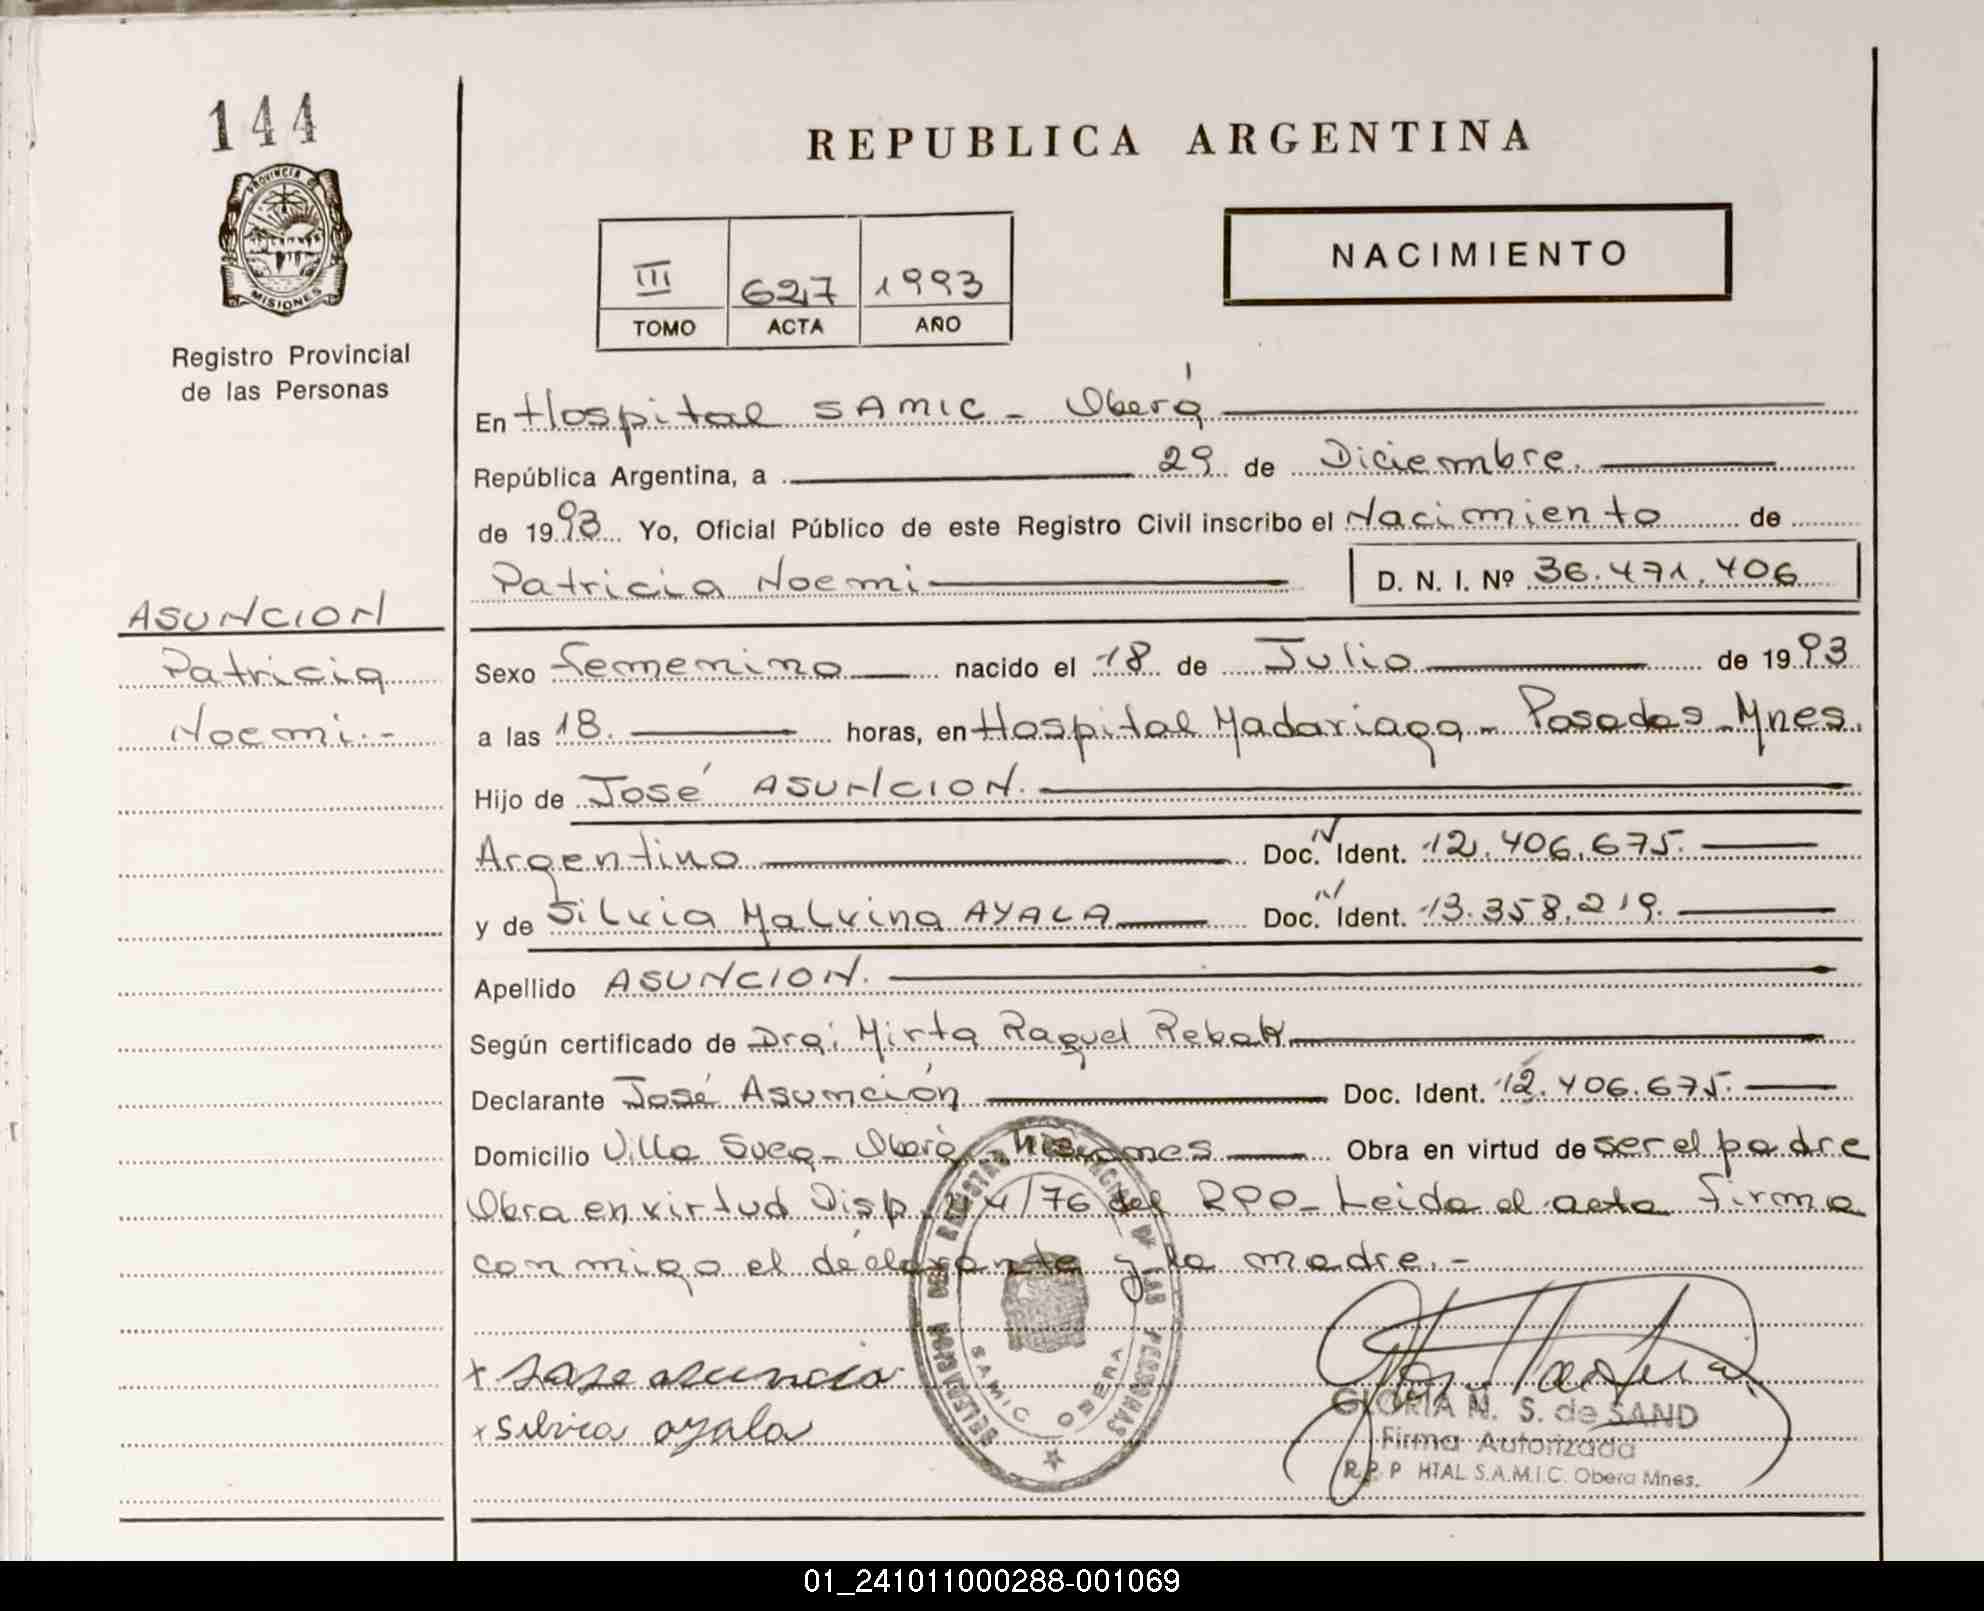 144
PROVINCIA D
MISIONES
Registro Provincial
de las Personas
ASUNCION
Patricia
Noemi.-
REPUBLICA ARGENTINA
III 627 1993
TOMO ACTA AÑO
NACIMIENTO
En Hospital SAMIC - Oberá
República Argentina, a 29 de Diciembre.
de 1993 Yo, Oficial Público de este Registro Civil inscribo el Nacimiento de
Patricia Noemi D. N. I. Nº 36.471.406
Sexo femenino nacido el 18 de Julio de 1993
a las 18. horas, en Hospital Madariaga - Posadas - Mnes.
Hijo de José ASUNCION.
Argentino Doc. N Ident. 12.406.675.
y de Silvia Malvina AYALA Doc. N Ident. 13.358.219.
Apellido ASUNCION.
Según certificado de Dra: Mirta Raquel Rebak
Declarante José Asunción Doc. Ident. 12.406.675.
Domicilio Villa Sueca - Oberá - Misiones Obra en virtud de ser el padre
Obra en virtud Disp. 24/76 del RPP - Leida el acta firma
conmigo el declarante y la madre.-
x Jose asuncio
x Silvia ayala
DELEGACION DEL REGISTRO DE LAS PERSONAS
SAMIC OBERA
GLORIA N. S. de SAND
Firma Autorizada
R.P.P HTAL S.A.M.I.C. Obera Mnes.
01_241011000288-001069